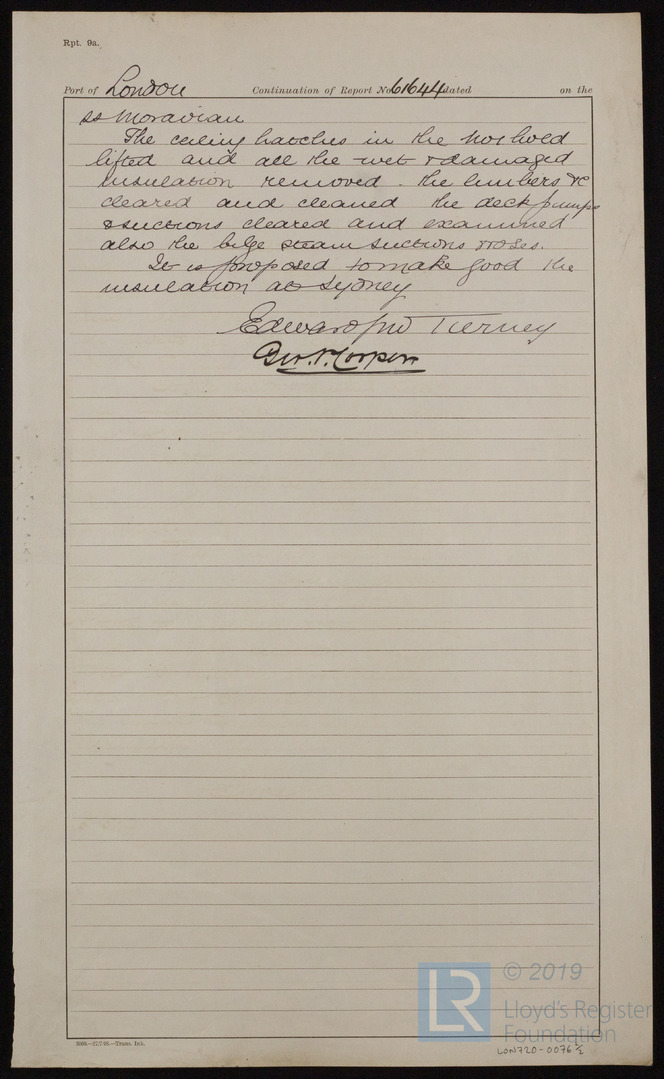 Rpt. 9a.
Port of London Continuation of Report No 61644 dated on the
ss Moravian
The ceiling hatches in the No 1 hold
lifted and all the wet & damaged
insulation removed. The limbers &c
cleared and cleaned the deck pumps
& suctions cleared and examined
also the bilge steam suctions roses.
It is proposed to make good the
insulation at Sydney
Edward Jno Tierney
Geo.
3000.—27,7,98.—Trans. Ink.
LR © 2019
Lloyd's Register
Foundation
LON720-0076 1/2